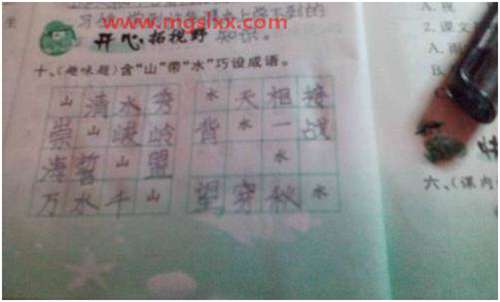 www.mgslxx.com
学不到的
开心拓视野 知识。
十、(趣味题)含“山”带“水”巧设成语。
山清水秀 水天相接
崇山峻岭 背水一战
海誓山盟 水
万水千山 望穿秋水
2.课文
A.
六、(课内